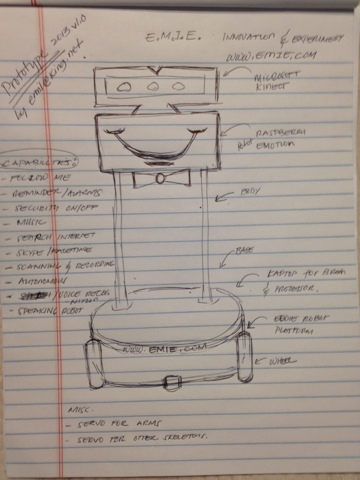 Prototype 2013 v1.0
by emieking.net
E.M.I.E. INNOVATION & EXPERIMENT
WWW.EMIE.COM
MICROSOFT
KINECT
RASPBERRI
EMOTION
CAPABILITIES:
- FOLLOW ME
- REMINDER/ALARMS
- SECURITY ON/OFF
- MUSIC
- SEARCH INTERNET
- SKYPE/FACETIME
- SCANNING & RECORDING
- AUTONOMOUS
- /VOICE RECOG
- SPEAKING ROBOT
BODY
BASE
LAPTOP FOR BRAIN
& PROCESSOR.
EDDIE ROBOT
PLATFORM
WWW.EMIE.COM
WHEEL
MISC.
- SERVO FOR ARMS
- SERVO FOR OTTER SKELETONS.